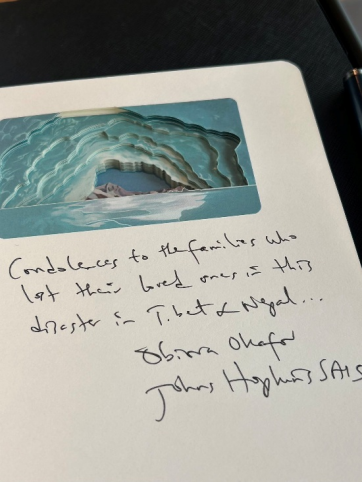 Condolences to the families who
lost their loved ones in this
disaster in Tibet & Nepal...
Obinna Okafor
Johns Hopkins SAIS